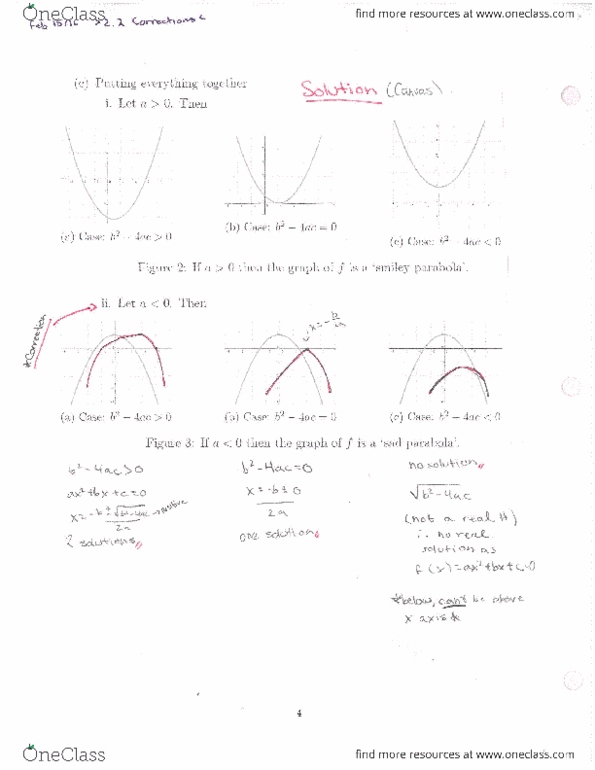 OneClass
find more resources at www.oneclass.com
Feb 2.2 Corrections
(c) Putting everything together
Solution (Canvas)
i. Let a > 0. Then
(a) Case: b² − 4ac > 0
(b) Case: b² − 4ac = 0
(c) Case: b² − 4ac < 0
Figure 2: If a > 0 then the graph of f is a 'smiley parabola'.
*Correction
ii. Let a < 0. Then
x = -b/2a
(a) Case: b² − 4ac > 0
(b) Case: b² − 4ac = 0
(c) Case: b² − 4ac < 0
Figure 3: If a < 0 then the graph of f is a 'sad parabola'.
b²-4ac>0
ax²+bx+c=0
x = -b ± √b²-4ac → positive
2a
2 solutions
b²-4ac=0
x = -b ± 0
2a
one solution
no solution
√b²-4ac
(not a real #)
∴ no real
solution as
f(x)=ax²+bx+c=0
*below, can't be above
x axis*
4
OneClass
find more resources at www.oneclass.com